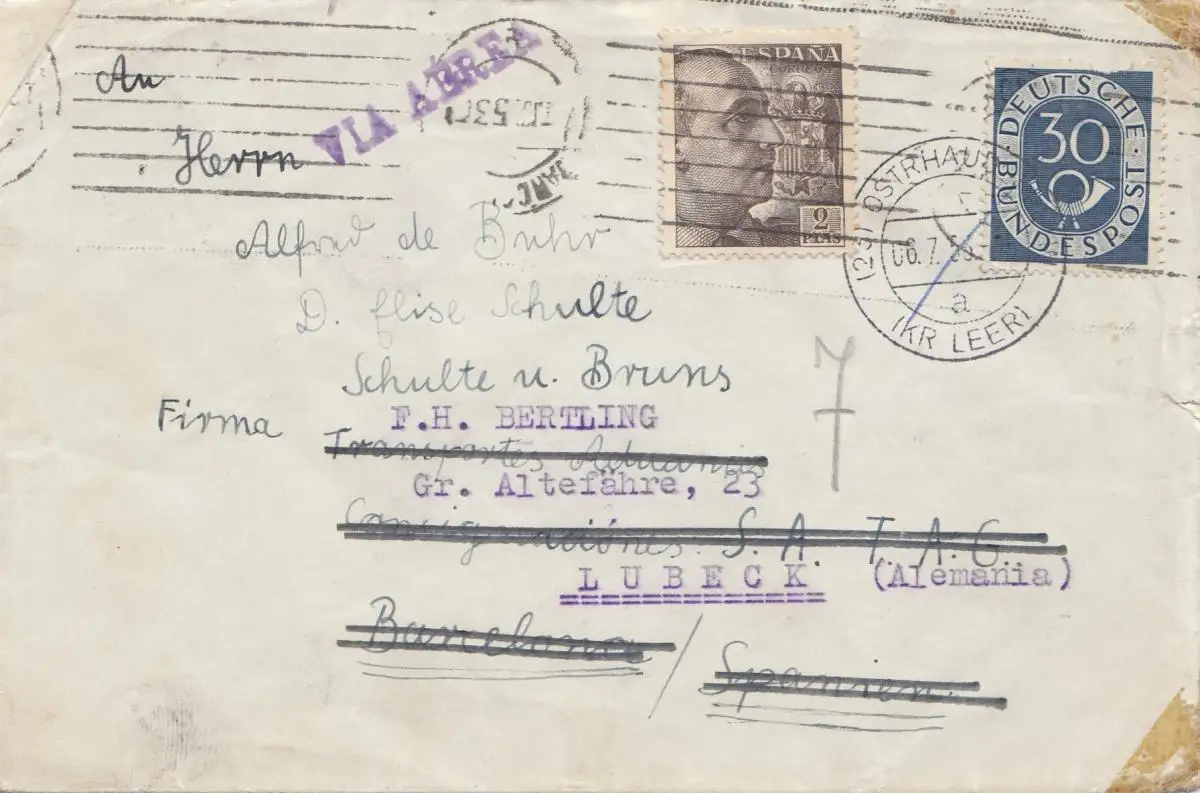 An
Herrn
VIA AÉREA
Alfred de Buhr
D. Elise Schulte
Schulte u. Bruns
Firma
F.H. BERTLING
Transportes Aduanas
Gr. Altefähre, 23
Consignaciónes. S. A. T. A. G.
L U B E C K (Alemania)
Barcelona / Spanien.
7
ESPAÑA
CORREOS
2
PTAS
DEUTSCHE BUNDESPOST
30
(23) OSTRHAU
06.7.53
a
(KR LEER)